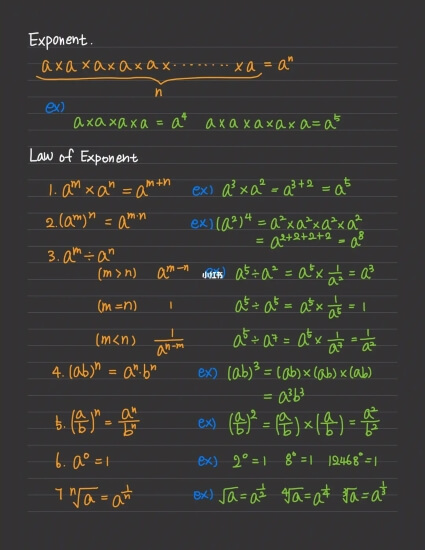 Exponent.
a×a×a×a×a×a×·········×a = aⁿ
n
ex)
a×a×a×a = a⁴ a×a×a×a×a = a⁵
Law of Exponent
1. aᵐ × aⁿ = aᵐ⁺ⁿ ex) a³×a² = a³⁺² = a⁵
2. (aᵐ)ⁿ = aᵐ·ⁿ ex) (a²)⁴ = a²×a²×a²×a²
= a²⁺²⁺²⁺² = a⁸
3. aᵐ ÷ aⁿ
(m>n) aᵐ⁻ⁿ 小红书 a⁵÷a² = a⁵×1/a² = a³
(m=n) 1 a⁵÷a⁵ = a⁵×1/a⁵ = 1
(m<n) 1/aⁿ⁻ᵐ a⁵÷a⁷ = a⁵×1/a⁷ = 1/a²
4. (ab)ⁿ = aⁿ·bⁿ ex) (ab)³ = (ab)×(ab)×(ab)
= a³b³
5. (a/b)ⁿ = aⁿ/bⁿ ex) (a/b)² = (a/b)×(a/b) = a²/b²
6. a⁰ = 1 ex) 2⁰=1 8⁰=1 12468⁰=1
7 ⁿ√a = a^(1/n) ex) √a = a^(1/2) ⁴√a = a^(1/4) ³√a = a^(1/3)